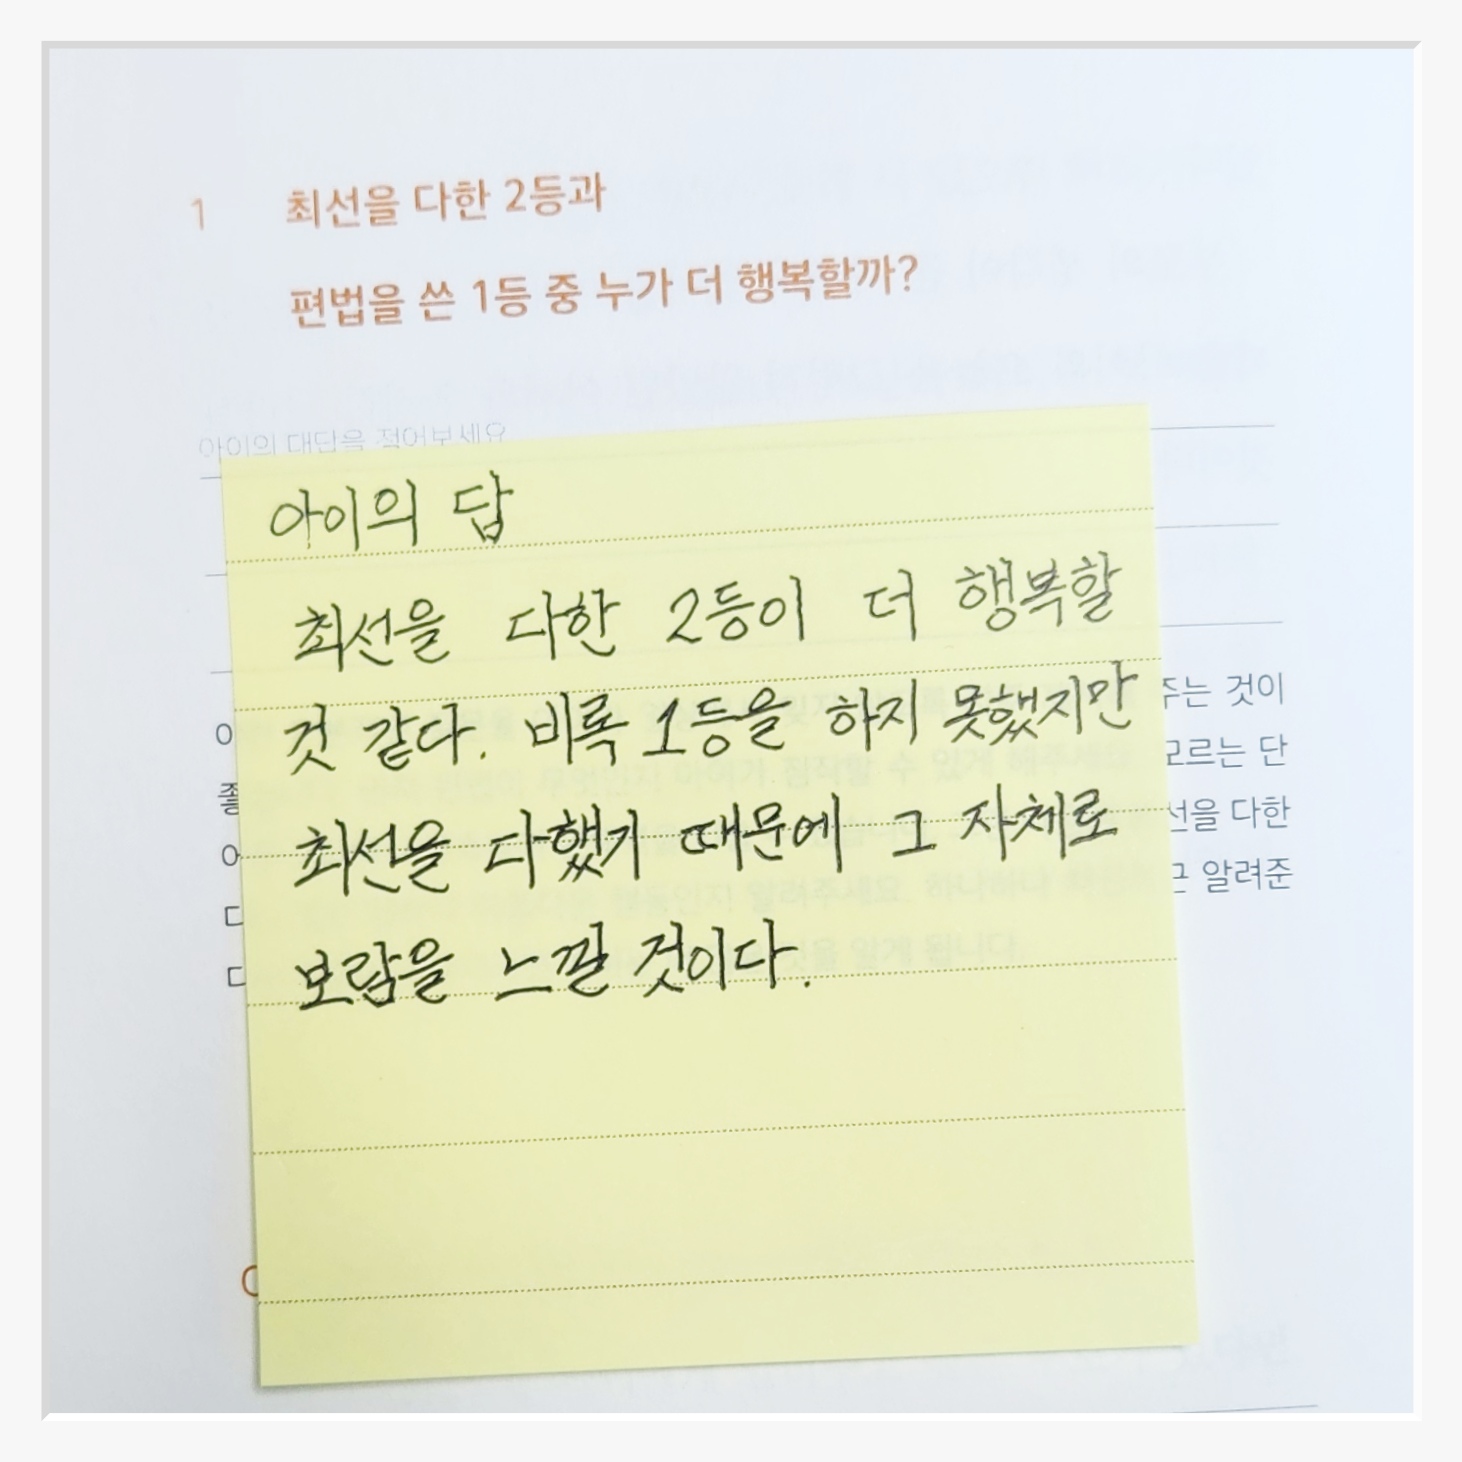 1 최선을 다한 2등과
편법을 쓴 1등 중 누가 더 행복할까?
아이의 대답을 적어보세요
아이의 답
최선을 다한 2등이 더 행복할
것 같다. 비록 1등을 하지 못했지만
최선을 다했기 때문에 그 자체로
보람을 느낄 것이다.
주는 것이
모르는 단
좋
선을 다한
알려준